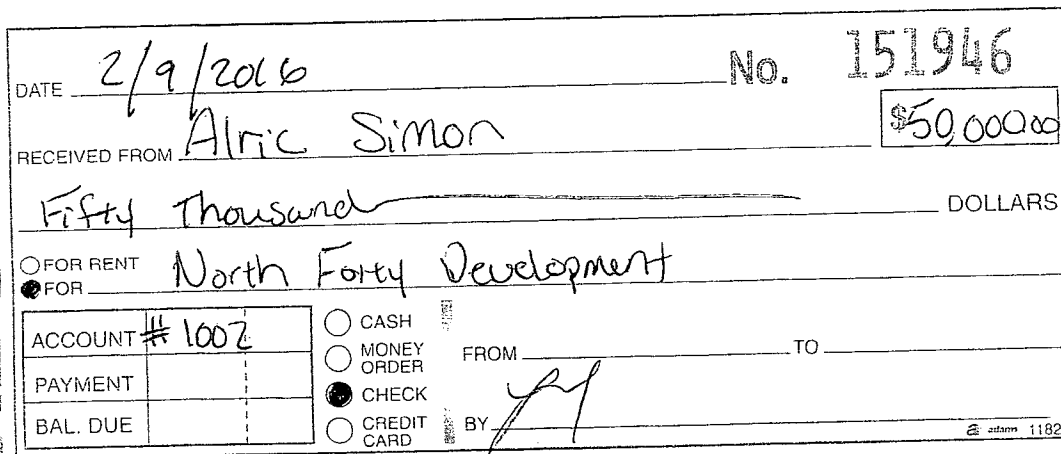 DATE 2/9/2016 No. 151946
RECEIVED FROM Alric Simon $50,000.00
Fifty Thousand DOLLARS
FOR RENT
FOR North Forty Development
ACCOUNT # 1002
PAYMENT
BAL. DUE
CASH
MONEY ORDER
CHECK
CREDIT CARD
FROM TO
BY
adams 1182